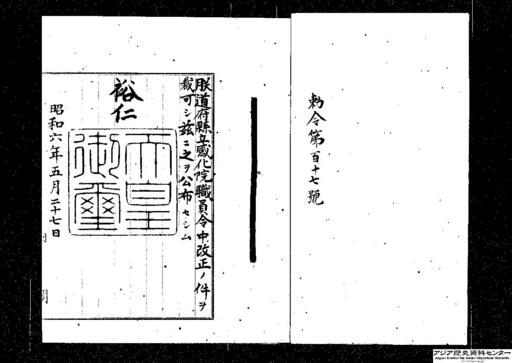 勅令第百十七號
朕道府縣立感化院職員令中改正ノ件ヲ
裁可シ玆ニ之ヲ公布セシム
裕仁
天皇
御璽
昭和六年五月二十七日
アジア歴史資料センター
Japan Center for Asian Historical Records